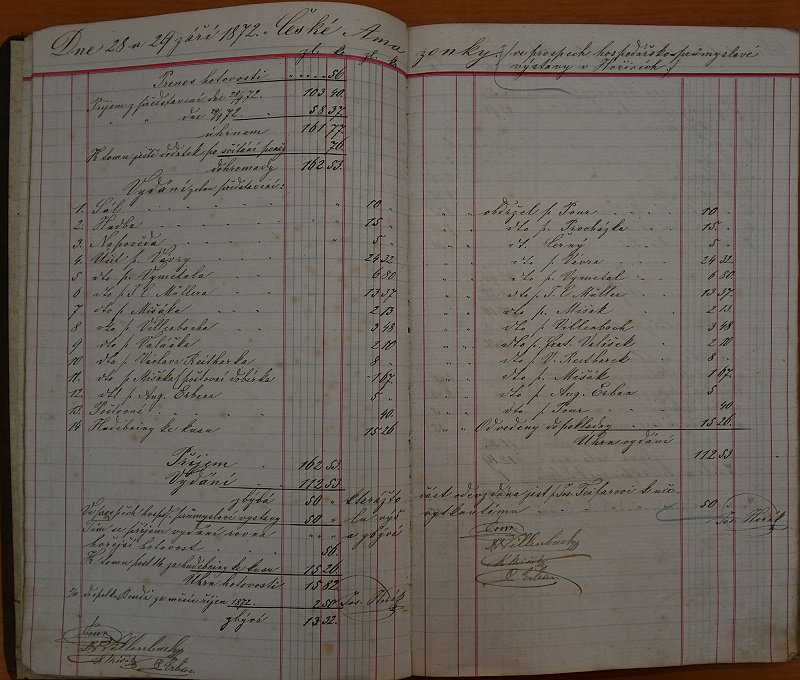 Dne 28 a 29 září 1872. České Amazonky. /ve prospěch hospodářsko-průmyslové
výstavy v Hořicích/
zl. kr. zl. kr.
Přenos hotovosti . . . . . 56.
Příjem z představení dne 28/9 72. 103 40.
" " dne 29/9 72. 58 37.
úhrnem 161 77.
K tomu ještě dodatek po sčítání peněz 76.
dohromady 162 53.
Vydání představení:
1. Sál 10 "
2. Hudba 15 "
3. Napověda 5 "
4. Účet p. Vávry 24 32.
5. dto p. Vymetala 6 80
6. dto p. Müllera 13 37
7. dto p. Mišáka 2 13
8. dto p. Villenbacha 3 48
9. dto p. Valáška 2 10
10. dto p. Václava Reitharka 8 "
11. dto p. Mišáka /poštovní dobírka 1 67.
12. dto p. Aug. Erbena 5 "
13. Poštovné 40.
14. Hudebniny ke kusu 15 26.
Příjem 162 53.
Vydání 112 53.
zbývá 50 "
Ve prospěch hosp. průmyslové výstavy 50 "
Tím se příjem vydání rovná " "
hořejší hotovost 56.
K tomu post 14 za hudebniny ke kusu 15 26.
Úhrn hotovosti 15 82.
za měsíc říjen 1872. 2 50 Jos. Horák
zbývá 13 32.
Villenbach
Mišák A. Erben
obdržel p. Pour 10 "
dto p. Procházka 15 "
dto Černý 5 "
dto p. Vávra 24 32.
dto p. Vymetal 6 80
dto p. Müller 13 37.
dto p. Mišák 2 13
dto p. Villenbach 3 48
dto p. Frant. Valášek 2 10
dto p. V. Reitharek 8 "
dto p. Mišák 1 67.
dto p. Aug. Erben 5 "
dto p. Pour 40
Odvedeny do pokladny 15 26
Úhrn vydání
112 53.
kterážto část odevzdána jest k
50 "
Jos. Horák
Villenbach
Mišák
A. Erben